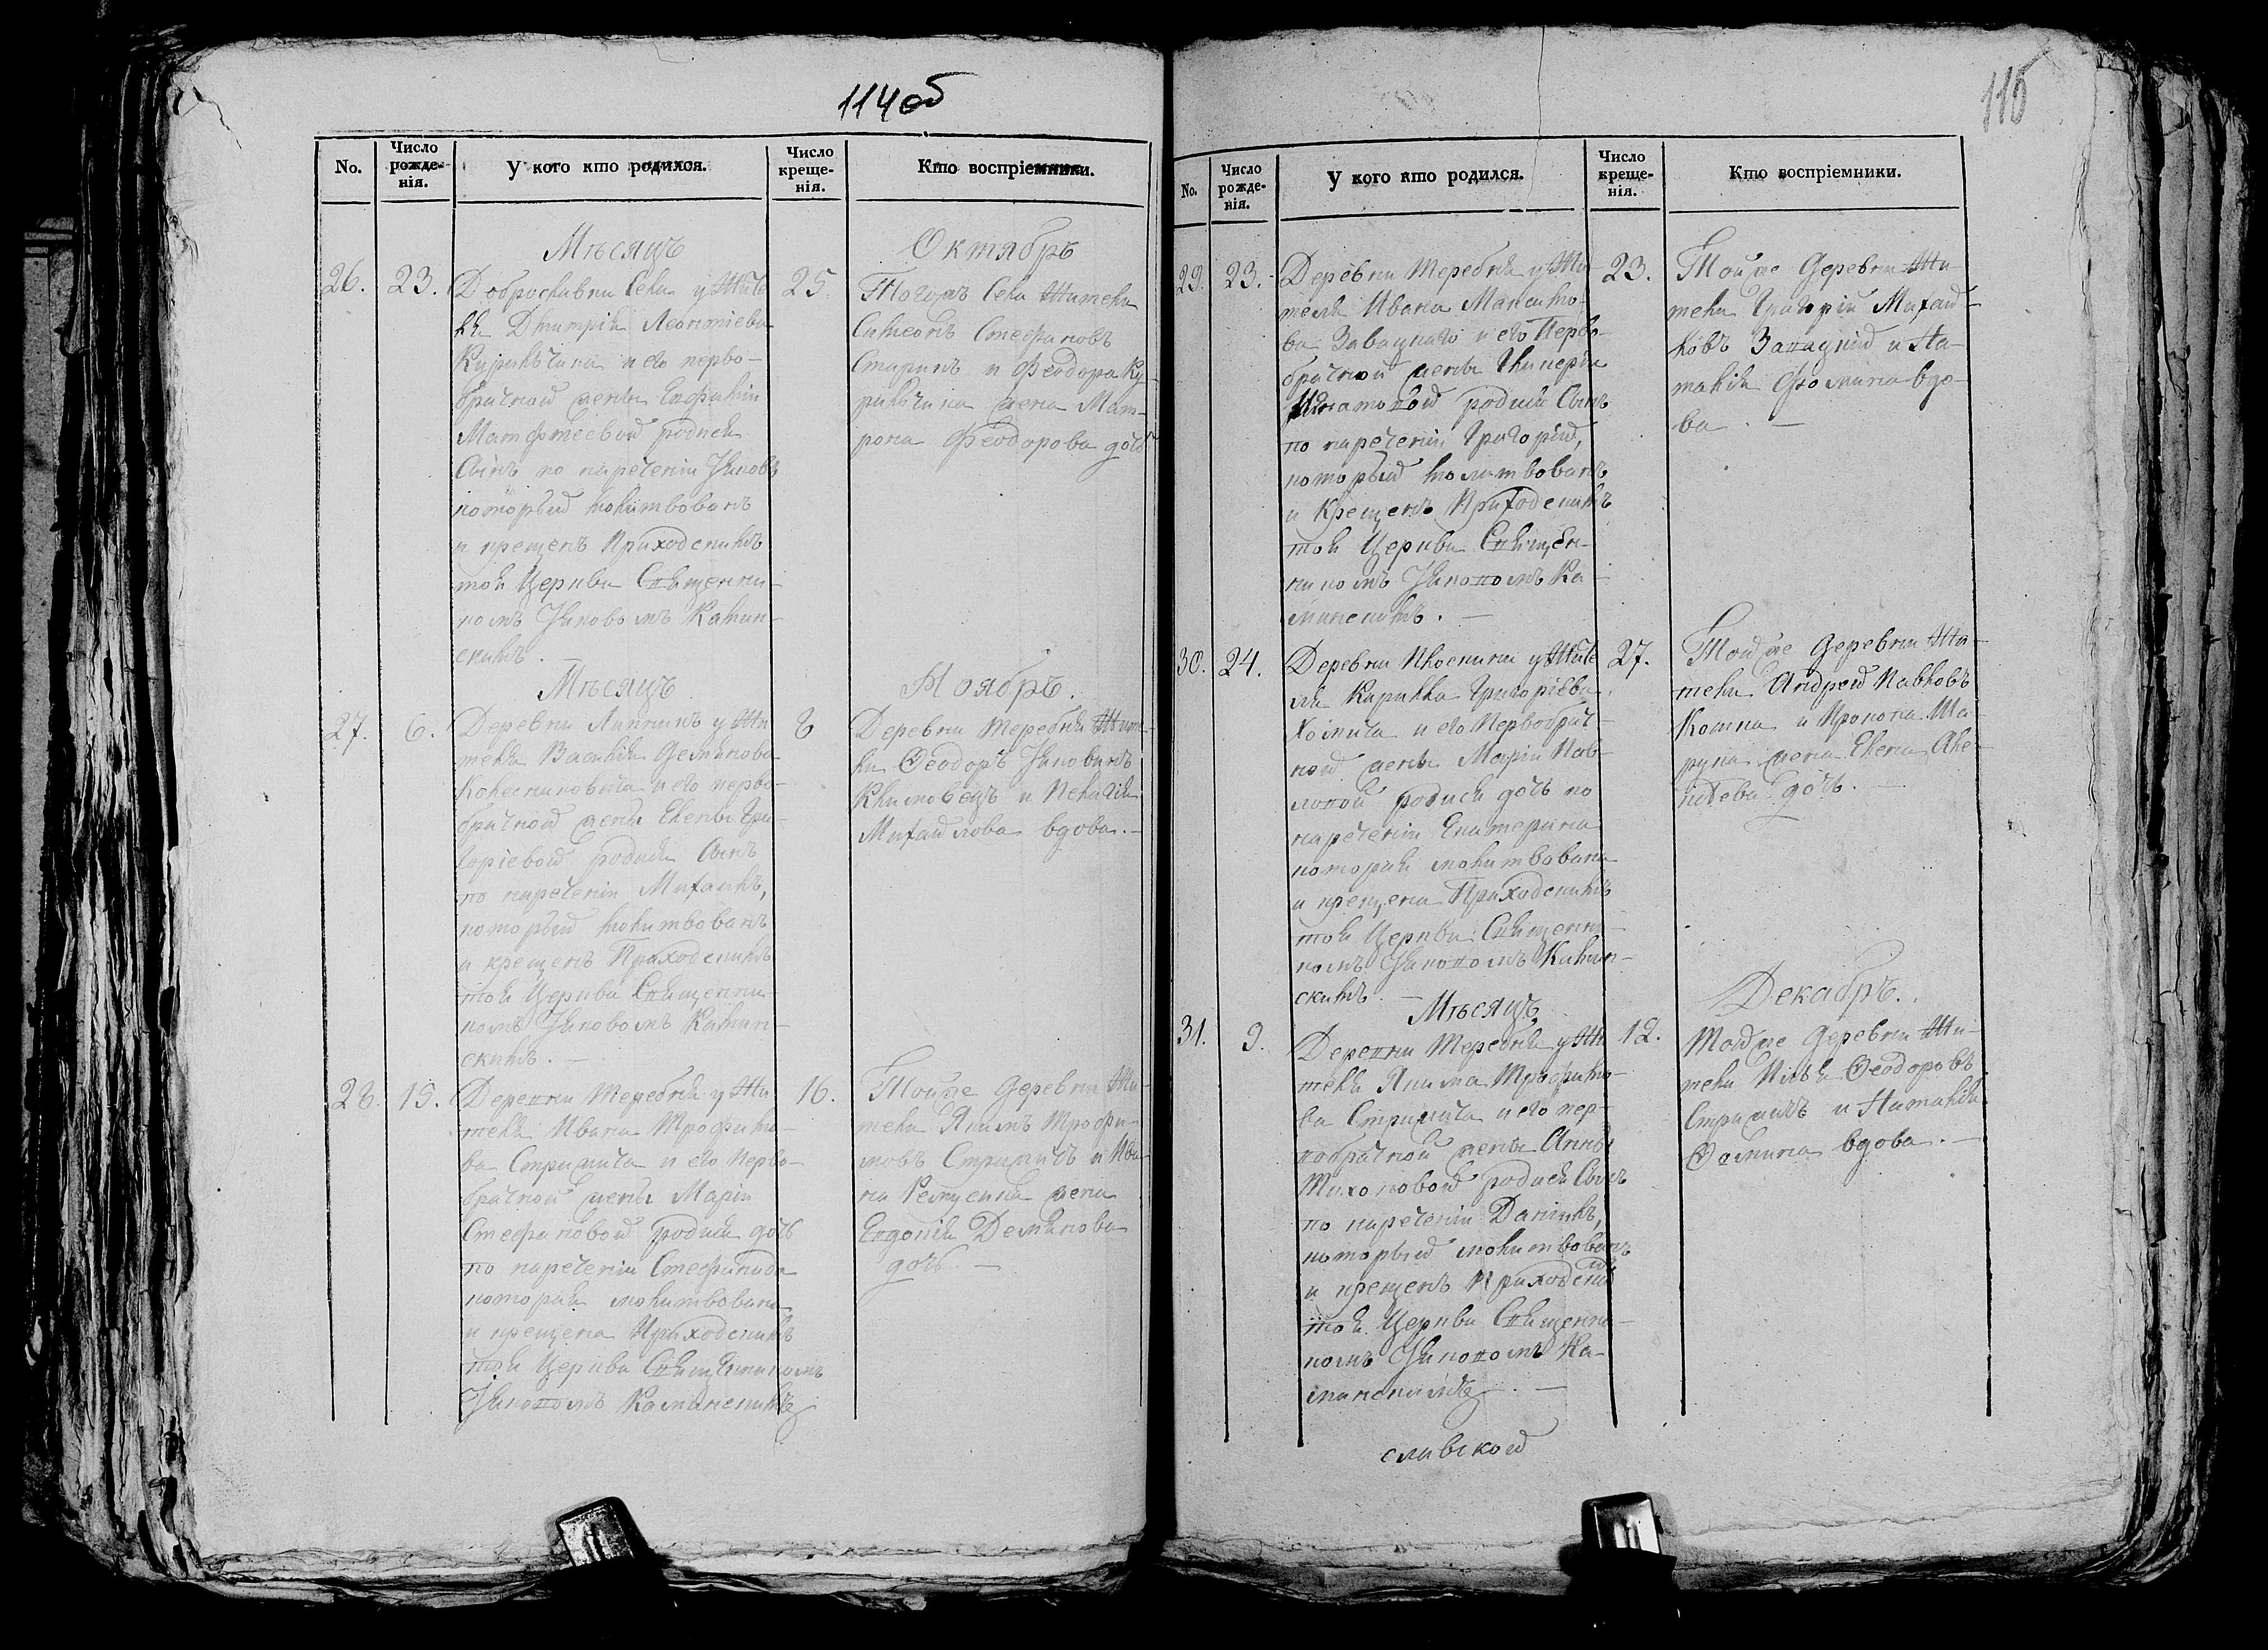 114 об
No.
Число рожде-нія.
У кого кто родился.
Число креще-нія.
Кто воспріемники.
Мѣсяцъ
Октябрь
26.
23.
Доброславки Села у Жите
ля Дмитрія Леонтіева
и его перво-
брачной жены
Матфеевой родился
Сынъ по наречении Іяковъ
который молитвованъ
и крещенъ Приходскимъ
тоя Церкви Священни-
комъ Іяковомъ Камин-
скимъ.
25.
Тогожъ Села Жители
Симеонъ Стефановъ
и Феодора Ку-
жена Мат-
рона Феодорова дочь
Мѣсяцъ
Ноябрь.
27.
6.
Деревни у Жи
теля Василія
Колесниковича и его перво-
брачной жены Елены Гри-
горіевой родился Сынъ
по наречении Михаилъ,
который молитвованъ
и крещенъ Приходскимъ
тоя Церкви Священни-
комъ Іяковомъ Камин-
скимъ.
8
Деревни Теребня Жите-
ли Феодоръ
Климовецъ и Пелагія
Михайлова вдова.
28.
15.
Деревни Теребня у Жи
теля Ивана Трофимо-
ва Стрижича и его перво-
брачной жены Маріи
Стефановой родися дочь
по наречении Стефанида
которая молитвована
и крещена Приходскимъ
тоя Церкви Священникомъ
Іяковомъ Каминскимъ
16.
Тойже деревни Жи-
тели Якимъ Трофи-
мовъ Стрижичъ и Ива-
на жена
Евдокія Демянова
дочь.
115
No.
Число рожде-нія.
У кого кто родился.
Число креще-нія.
Кто воспріемники.
29.
23.
Деревни Теребня у Жи-
теля Ивана Максимо-
ва Завацкаго и его Перво-
брачной жены Гликеріи
родися Сынъ
по наречении Григорій,
который молитвованъ
и Крещенъ Приходскимъ
тоя Церкви Священ-
никомъ Іяковомъ Ка-
минскимъ.
23.
Тойже деревни Жи-
тели Григорій Михай-
ловъ Завацкій и На-
талія Фомина вдо-
ва.
30.
24.
Деревни у Жите
ля Кирилла Григоріева
Хомича и его Первобрач-
ной жены Маріи Пав-
ловой родися дочь по
наречении Екатерина
которая молитвована
и крещена Приходскимъ
тоя Церкви Священни-
комъ Іяковомъ Камин-
скимъ.
27.
Тойже деревни Жи-
тели Андрей Павловъ
и Прокопа Ша-
жена Елена Але-
дочь.
Мѣсяцъ
Декабрь.
31.
9.
Деревни Теребня у Жи
теля Якима Трофимо-
ва Стрижича и его пер-
вобрачной жены Анны
Тихоновой родися Сынъ
по наречении Даніилъ,
который молитвованъ
и крещенъ Приходским
тоя Церкви Священни-
комъ Іяковомъ Ка-
минскимъ.
12.
Тойже деревни Жи-
тели Илья Феодоровъ
Стрижичъ и Наталія
Фомина вдова.
славской